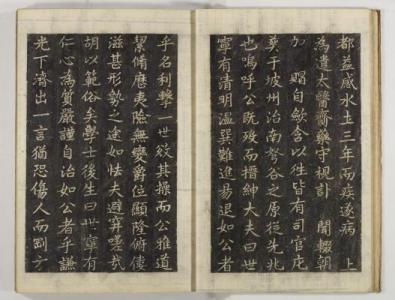 都益感水土三年而疾遂病上
為遣太醫齎藥守視訃聞輟朝
加賵自歛含以徃皆有司庀
莫于坡州治南𡺲谷之原從先兆
也嗚呼公既歿而搢紳大夫曰世
寧有清明温巽難進易退如公者
乎名利擊一世效其操而公雅道
絜脩庶夷險無變爵位顯隆俯僂
滋甚形勢之途如怯夫避穽嗟哉
胡以範俗矣學士後生曰世寧有
仁心為質嚴謹自治如公者乎謙
光下濟出一言猶恐傷人而劘方